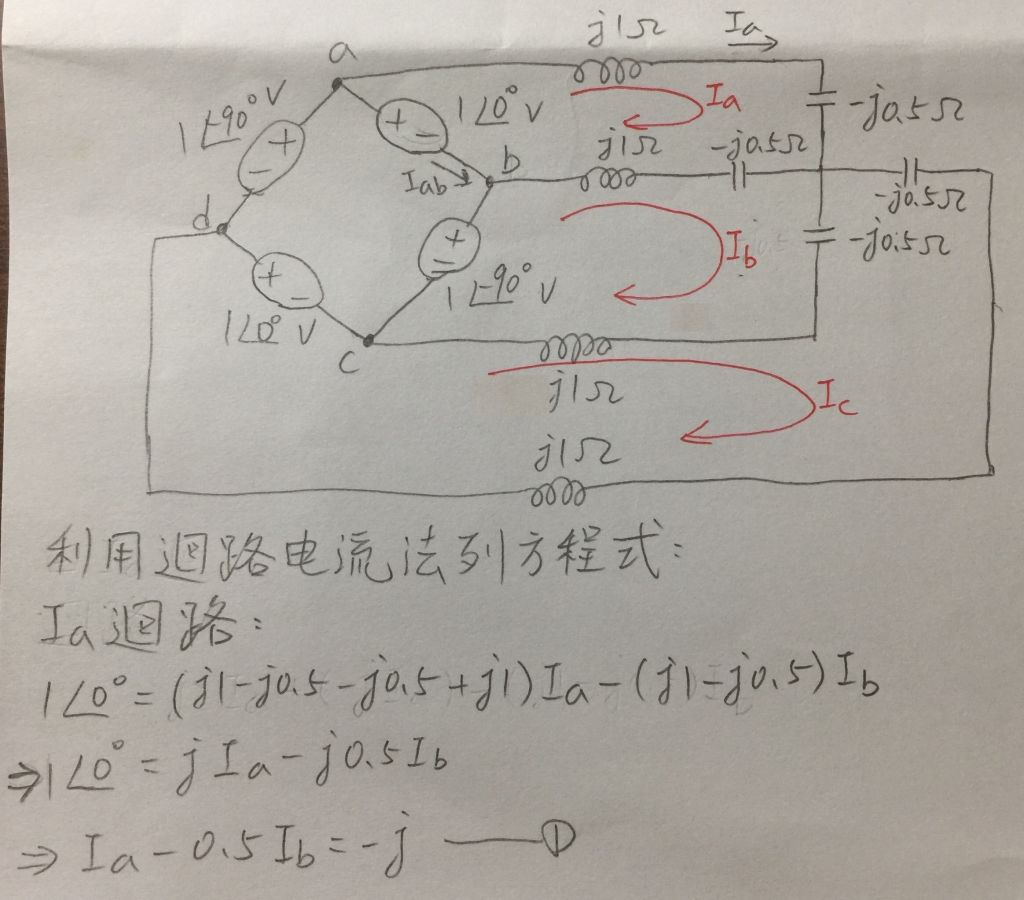 j1Ω
Ia
a
1∠-90° V
1∠0° V
Ia
-j0.5Ω
j1Ω
-j0.5Ω
Iab
b
-j0.5Ω
d
Ib
-j0.5Ω
1∠-90° V
1∠0° V
c
j1Ω
Ic
j1Ω
利用迴路电流法列方程式:
Ia迴路:
1∠0° = (j1-j0.5-j0.5+j1)Ia-(j1-j0.5)Ib
⇒1∠0° = jIa-j0.5Ib
⇒ Ia-0.5Ib=-j ——①